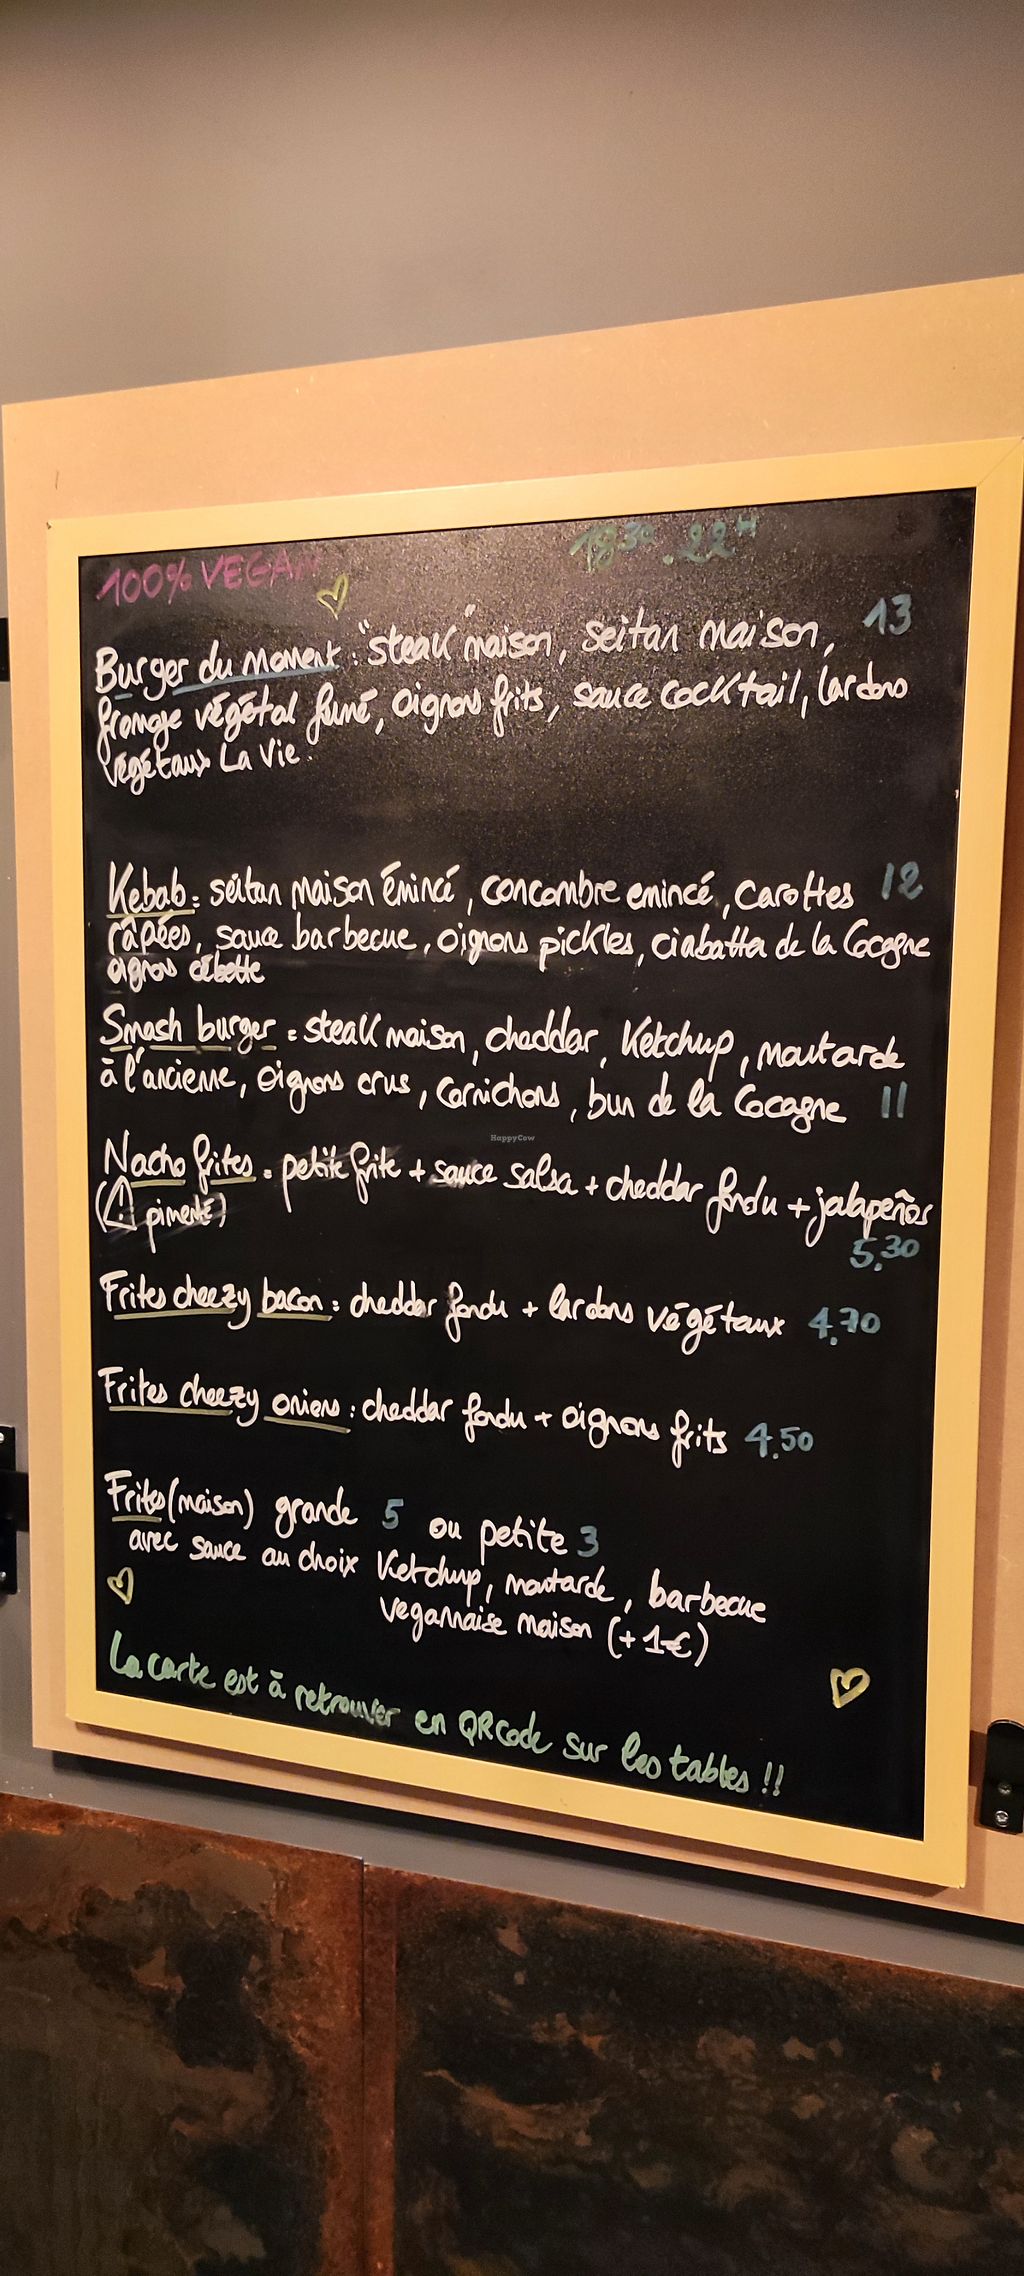 100% VEGAN 18 30 . 22 H
Burger du moment : "steak" maison, seitan maison, 13
fromage végétal fumé, oignons frits, sauce cocktail, lardons
végétaux La Vie.
Kebab : seitan maison émincé, concombre emincé, carottes 12
râpées, sauce barbecue, oignons pickles, ciabatta de la Cocagne
oignons cibette
Smash burger : steak maison, cheddar, Ketchup, moutarde
à l'ancienne, oignons crus, cornichons, bun de la Cocagne 11
Nacho frites : petite frite + sauce salsa + cheddar fondu + jalapeños
(⚠ pimenté)
5.30
Frites cheezy bacon : cheddar fondu + lardons végétaux 4.70
Frites cheezy onions : cheddar fondu + oignons frits 4.50
Frites (maison) grande 5 ou petite 3
avec sauce au choix Ketchup, moutarde, barbecue
vegannaise maison (+ 1€)
La carte est à retrouver en QR code sur les tables !!
HappyCow